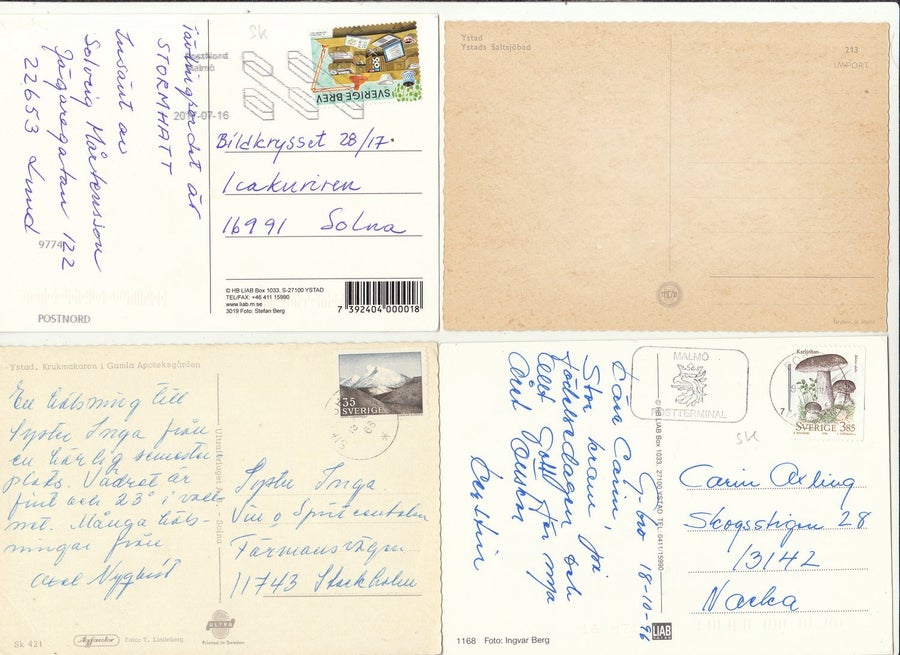 Tävlingsordet är
STORMHATT
Insänt av
Solveig Mårtensson
Jägaregatan 122
22653 Lund
SK
PostNord
Malmö
2017-07-16
SVERIGE BREV
Bildkrysset 28/17.
Icakuriren
16991 Solna
9774
POSTNORD
© HB LIAB Box 1033, S-27100 YSTAD
TEL/FAX: +46 411 15990
www.liab.m.se
3019 Foto: Stefan Berg
7 392404 000018
Ystad
Ystads Saltsjöbad
213
IMPORT
Ystad. Krukmakaren i Gamla Apoteksgården
En hälsning till
Syster Inga från
en härlig semester
plats. Vädret är
fint och 23° i vatt-
net. Många häls-
ningar från
Axel Nyqvist
Ultraförlaget A.-B. Solna
35
SVERIGE
Syster Inga
Vin o Spritcentralen
Färmansvägen
11743 Stockholm
Sk 421
Agfacolor
Foto: T. Lindeberg
ULTRA
Printed in Sweden
G-bro 18-10-96
Kära Carin,
Stor kram på
födelsedagen och
allt gott Hör
Kerstin
© HB LIAB Box 1033, 27100 YSTAD TEL. 0411/15990
MALMÖ
POSTTERMINAL
Karljohan
SVERIGE 3.85
SK
Carin Axling
Skogsstigen 28
13142
Nacka
1168 Foto: Ingvar Berg
LIAB